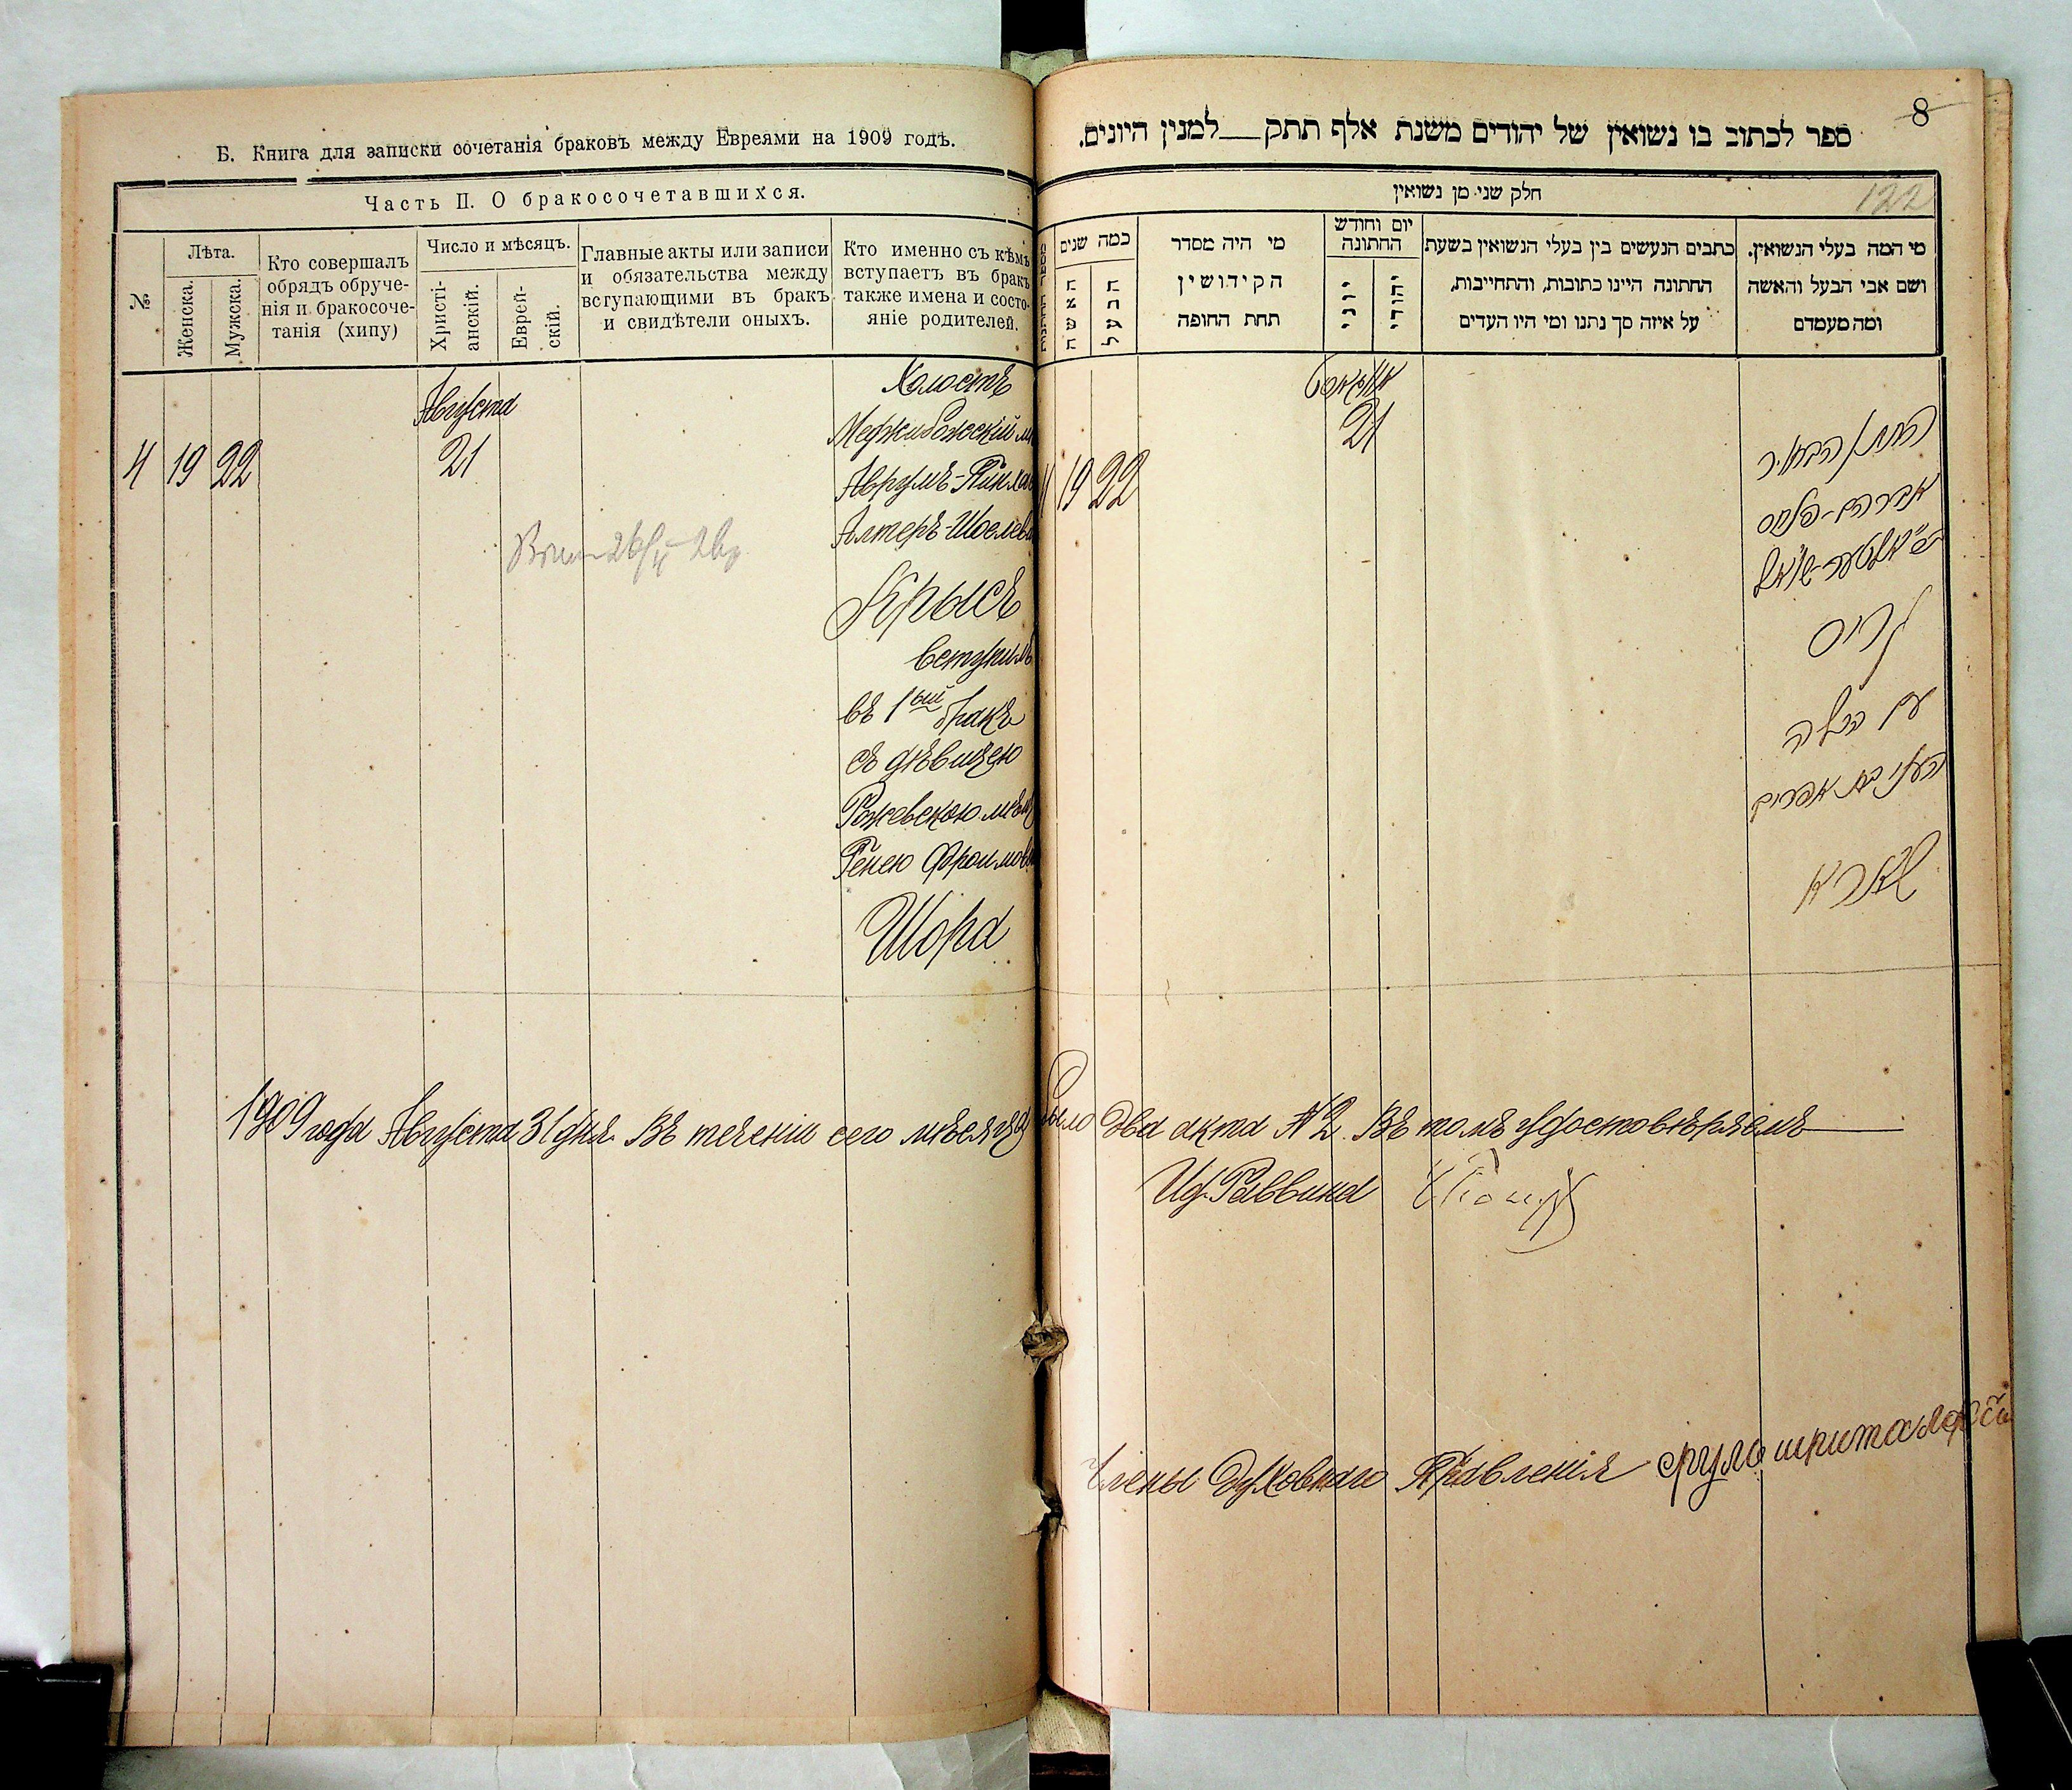 Б. Книга для записки сочетанія браковъ между Евреями на 1909 годъ.
Часть II. О бракосочетавшихся.
№
Лѣта.
Женска.
Мужска.
Кто совершалъ
обрядъ обруче-
нія и бракосоче-
танія (хипу)
Число и мѣсяцъ.
Христі-
анскій.
Еврей-
скій.
Главные акты или записи
и обязательства между
вступающими въ бракъ
и свидѣтели оныхъ.
Кто именно съ кѣмъ
вступаетъ въ бракъ
также имена и состо-
яніе родителей.
Августа
4 19 22 21
Холостъ
Меджибожскій м
Аврумъ-Пинхас
Алтеръ-Шоелев
Крысъ
вступилъ
въ 1ый бракъ
съ дѣвицею
Ражевскою мѣщ
Генею Фроимов
Шора
1909 года Августа 31 дня. Въ теченіи сего мѣсяца было два акта № 2. Въ томъ удостовѣряемъ
8
ספר לכתוב בו נשואין של יהודים משנת אלף תתק__למנין היונים.
חלק שני מן נשואין
122
מי המה בעלי הנשואין.
ושם אבי הבעל והאשה
ומה מעמדם
כתבים הנעשים בין בעלי הנשואין בשעת
החתונה היינו כתובות, והתחייבות,
על איזה סך נתנו ומי היו העדים
יום וחודש
החתונה
יהודי
יוני
מי היה מסדר
הקידושין
תחת החופה
כמה שנים
הבעל
האשה
אויגוסט
21
4 19 22
החתן הבחור
אברהם-פנחס
ב"ר אלטער-שואל
קריס
עם הכלה
העני בת אפרים
שארא
И.д. Раввина
Члены Духовнаго Правленія